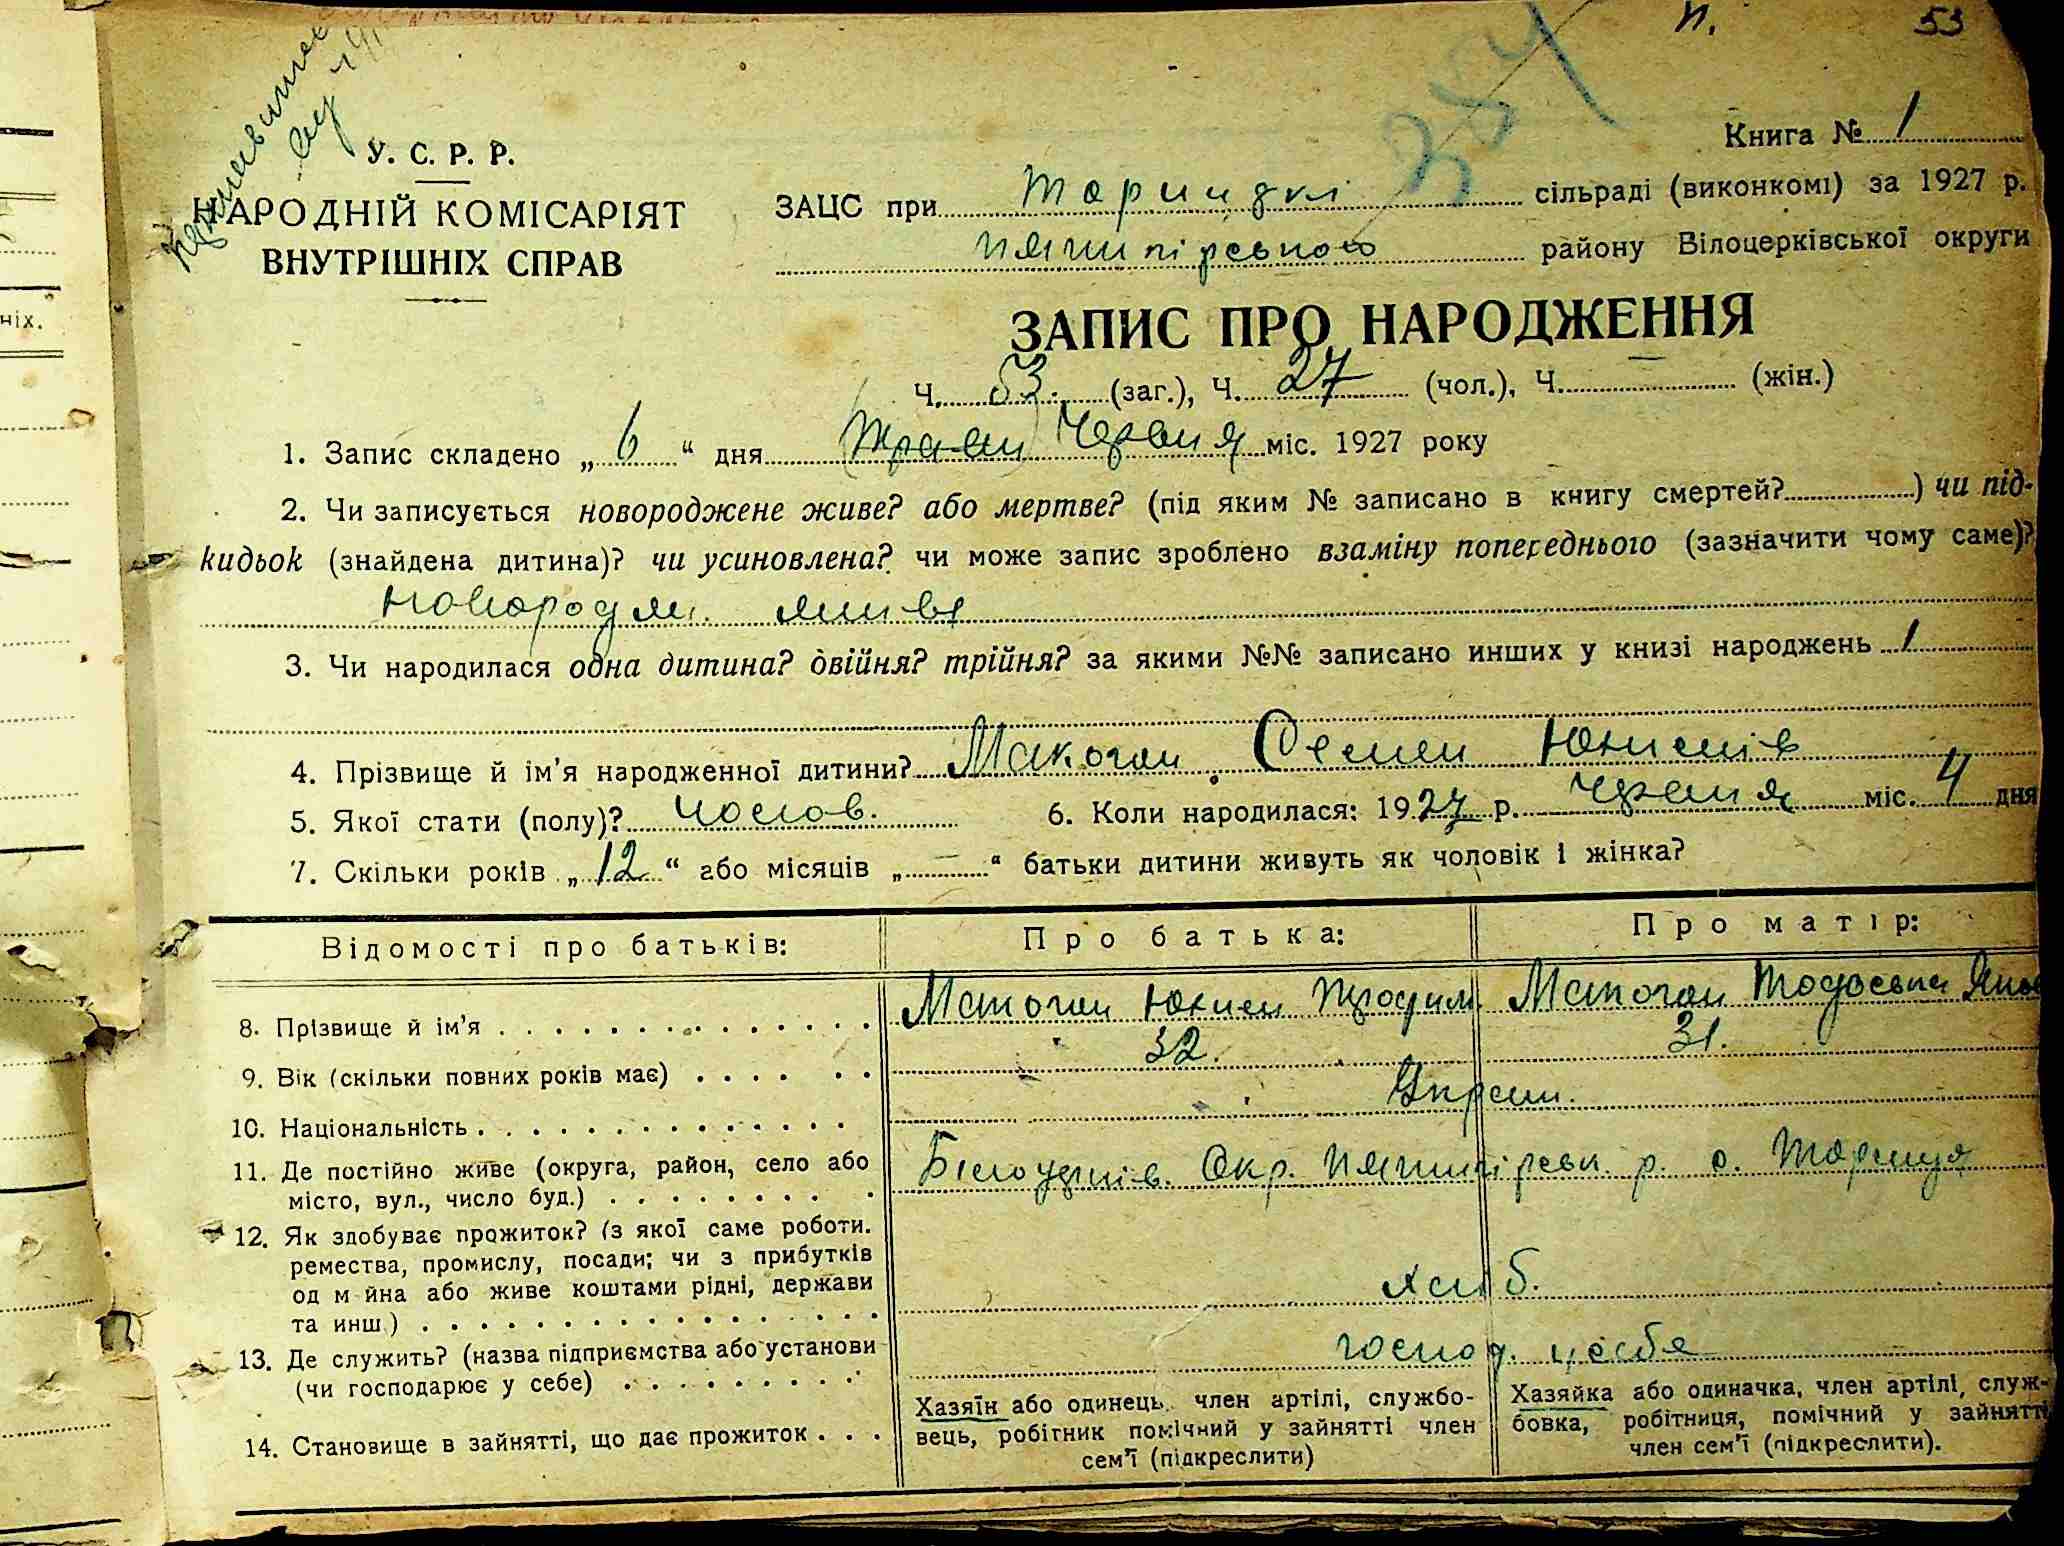 п. 53
384
У. С. Р. Р.
НАРОДНІЙ КОМІСАРІЯТ
ВНУТРІШНІХ СПРАВ
ніх.
Книга № 1
ЗАЦС при Торицкі сільраді (виконкомі) за 1927 р.
Пятигірського району Білоцерківської округи
ЗАПИС ПРО НАРОДЖЕННЯ
Ч. 53. (заг.), Ч. 27 (чол.), Ч. — (жін.)
1. Запис складено „ 6 “ дня (Трав) Червня міс. 1927 року
2. Чи записується новороджене живе? або мертве? (під яким № записано в книгу смертей? ) чи під-
кидьок (знайдена дитина)? чи усиновлена? чи може запис зроблено взаміну попереднього (зазначити чому саме)?
новородж. живе
3. Чи народилася одна дитина? двійня? трійня? за якими №№ записано инших у книзі народжень 1
4. Прізвище й ім'я народженної дитини? Макоган Семен Юхимів
5. Якої стати (полу)? чолов. 6. Коли народилася: 1927 р. Червня міс. 4 дня
7. Скільки років „ 12 “ або місяців „ — “ батьки дитини живуть як чоловік і жінка?
Відомості про батьків: Про батька: Про матір:
8. Прізвище й ім'я Макоган Юхим Трофим. Макоган Тодоська
9. Вік (скільки повних років має) 32. 31.
10. Національність Украін.
11. Де постійно живе (округа, район, село або
місто, вул., число буд.) Білоцерків. Окр. Пятигірськ. р. с. Ториця
12. Як здобуває прожиток? (з якої саме роботи.
ремества, промислу, посади; чи з прибутків
од м йна або живе коштами рідні, держави
та инш.) хліб.
13. Де служить? (назва підприємства або установи
(чи господарює у себе) господ. у себе
14. Становище в зайнятті, що дає прожиток
Хазяїн або одинець, член артілі, службо-
вець, робітник помічний у зайнятті член
сем'ї (підкреслити)
Хазяйка або одиначка, член артілі, служ-
бовка, робітниця, помічний у зайнятті
член сем'ї (підкреслити).